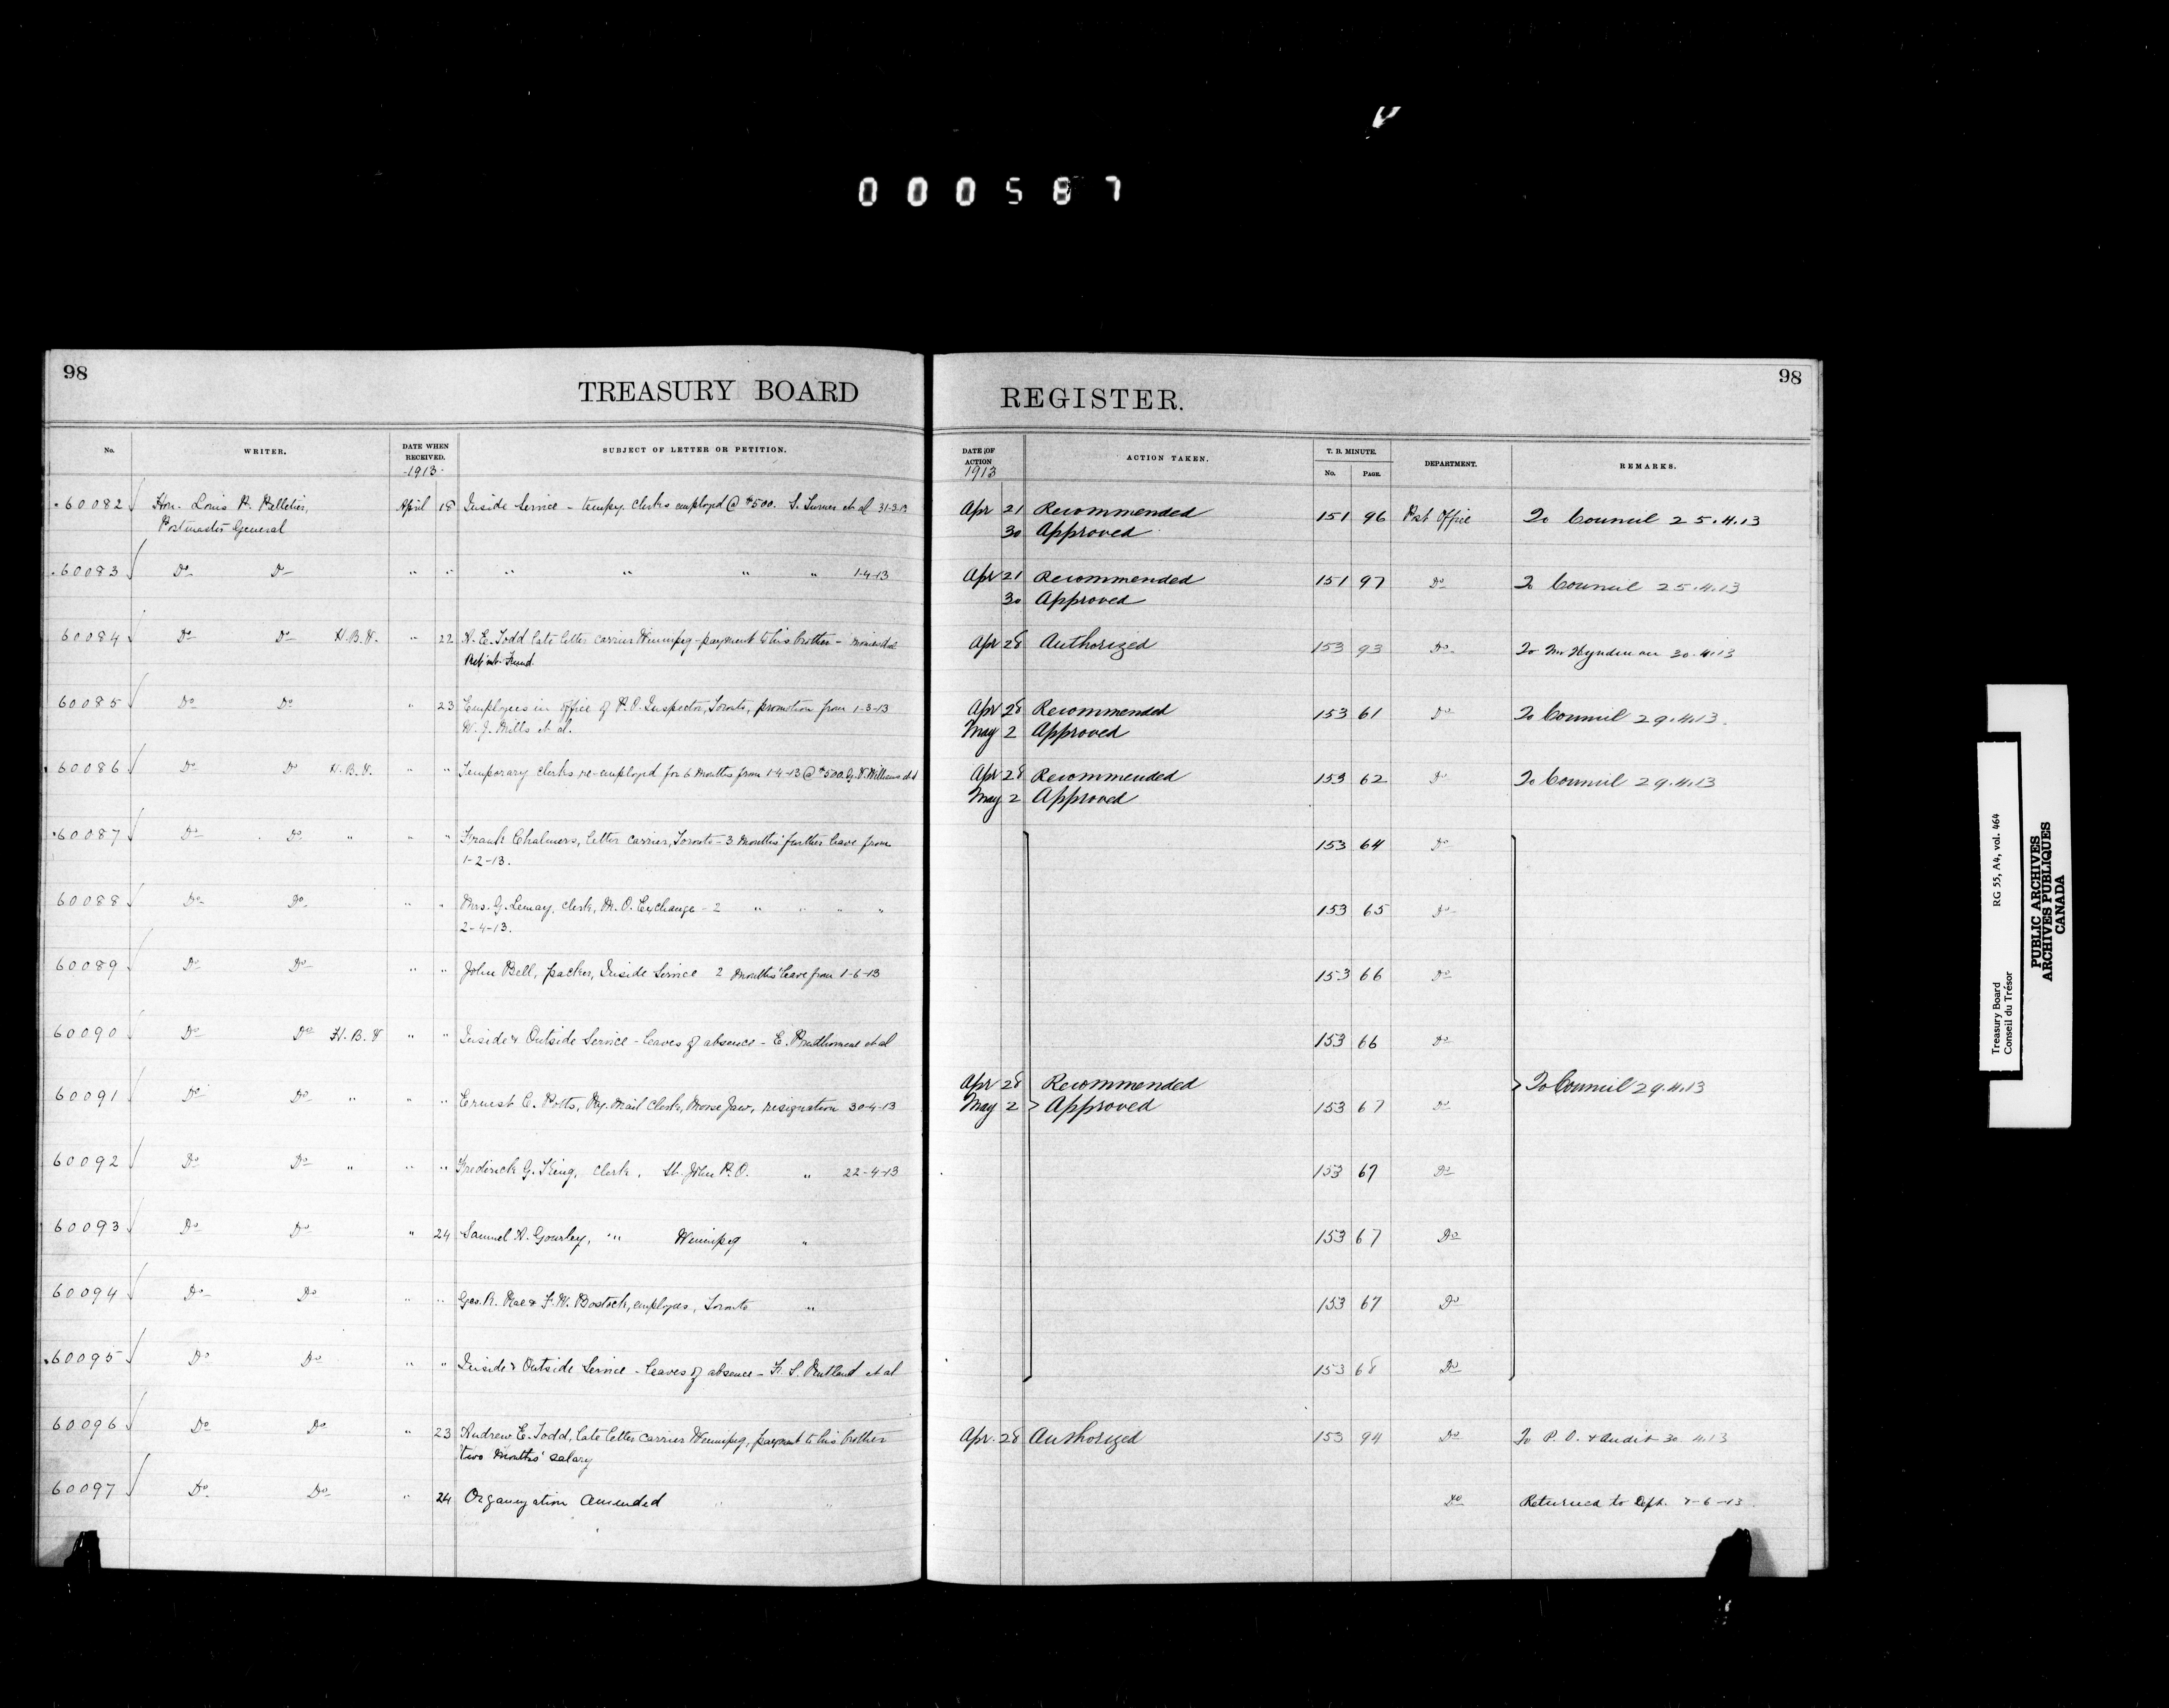 000587
98
TREASURY BOARD
REGISTER.
98
No. WRITER. DATE WHEN RECEIVED. SUBJECT OF LETTER OR PETITION. DATE OF ACTION ACTION TAKEN. T. B. MINUTE. No. PAGE. DEPARTMENT. REMARKS.
-1913- 1913
60082 Hon. Louis P. Pelletier, April 18 Inside Service - tempy. Clerks employed @ $500. S. Turner et al 31-3-13 Apr 21 Recommended 151 96 Post Office To Council 25.4.13
Postmaster General 30 Approved
60083 Do Do " " " " " " 1-4-13 Apr 21 Recommended 151 97 Do To Council 25.4.13
30 Approved
60084 Do Do H.B.V. " 22 A. E. Todd late letter carrier Winnipeg - payment to his brother - Apr 28 Authorized 153 93 Do To Mr Hyndman 30.4.13
Ret'mt Fund
60085 Do Do " 23 Employees in office of P.O. Inspector, Toronto, promotion from 1-3-13 Apr 28 Recommended 153 61 Do To Council 29.4.13.
W. J. Mills et al. May 2 Approved
60086 Do Do H.B.V. " " Temporary clerks re-employed for 6 months from 1-4-13 @ $500. G. V. Williams et al Apr 28 Recommended 153 62 Do To Council 29.4.13
May 2 Approved
60087 Do Do " " " Frank Chalmers, letter carrier, Toronto - 3 months' further leave from 153 64 Do
1-2-13.
60088 Do Do " " Mrs. G. Lemay, clerk, M.O. Exchange - 2 " " " " 153 65 Do
2-4-13.
60089 Do Do " " John Bell, packer, Inside Service 2 months' leave from 1-6-13 153 66 Do
60090 Do Do H.B.V " " Inside & Outside Service - leaves of absence - E. Prudhomme et al 153 66 Do
Apr 28 Recommended To Council 29.4.13
60091 Do Do " " " Ernest C. Potts, Ry. Mail Clerk, Moose Jaw, resignation 30-4-13 May 2 Approved 153 67 Do
60092 Do Do " " " Frederick G. King, clerk, St. John P.O. " 22-4-13 153 67 Do
60093 Do Do " 24 Samuel H. Gourley, " Winnipeg " 153 67 Do
60094 Do Do " " Geo. R. Rae & F. W. Bostock, employees, Toronto " 153 67 Do
60095 Do Do " " Inside & Outside Service - leaves of absence - F. S. Rutland et al 153 68 Do
60096 Do Do " 23 Andrew E. Todd, late letter carrier Winnipeg, payment to his brother Apr. 28 Authorized 153 94 Do To P.O. & Audit 30 4.13
two months' salary
60097 Do Do " 24 Organization amended Do Returned to Dept. -6-13
Treasury Board RG 55, A4, vol. 464
Conseil du Trésor
PUBLIC ARCHIVES
ARCHIVES PUBLIQUES
CANADA